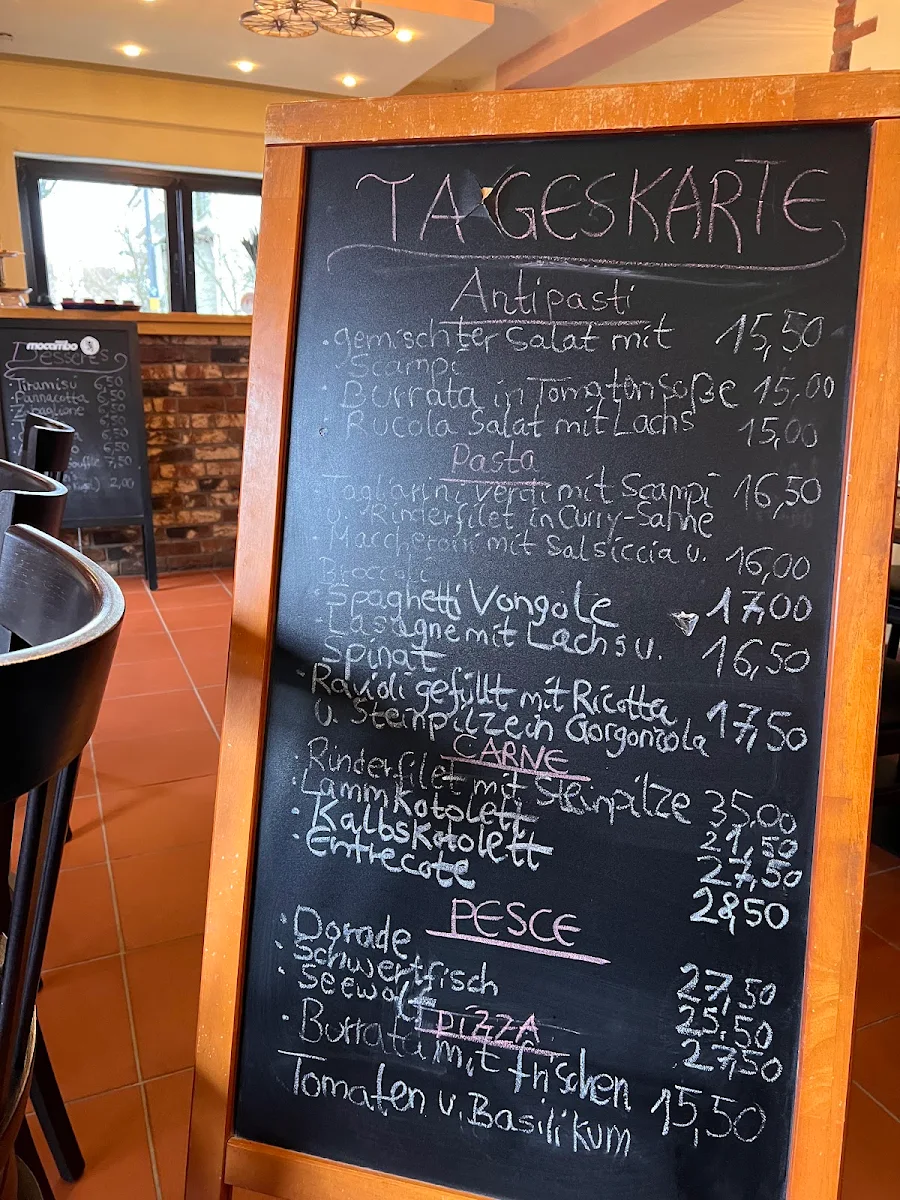 TAGESKARTE
Antipasti
· gemischter Salat mit 15,50
Scampi
Burrata in Tomatensoße 15,00
· Rucola Salat mit Lachs 15,00
Pasta
· Tagliarini verdi mit Scampi 16,50
u. Rinderfilet in Curry-Sahne
· Maccheroni mit Salsiccia u. 16,00
Broccoli
· Spaghetti Vongole 17,00
· Lasagne mit Lachs u. 16,50
Spinat
· Ravioli gefüllt mit Ricotta 17,50
u. Steinpilze in Gorgonzola
CARNE
· Rinderfilet mit Steinpilze 35,00
· Lammkotolett 21,50
· Kalbskotolett 27,50
· Entrecote 28,50
PESCE
· Dorade 27,50
· Schwertfisch 25,50
· Seewolf 27,50
PIZZA
· Burrata mit frischen
Tomaten u. Basilikum 15,50
mocambo
Desserts
· Tiramisu 6,50
· Pannacotta 6,50
· Zabaglione 6,50
6,50
7,50
2,00